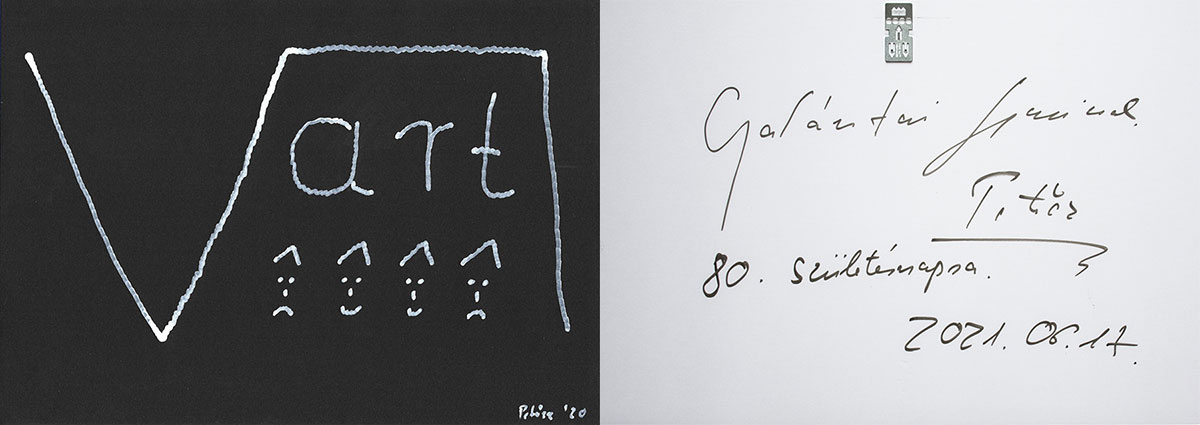 art
'20
Galántai Gyurinak.
80. születésnapra.
2021. 06. 17.